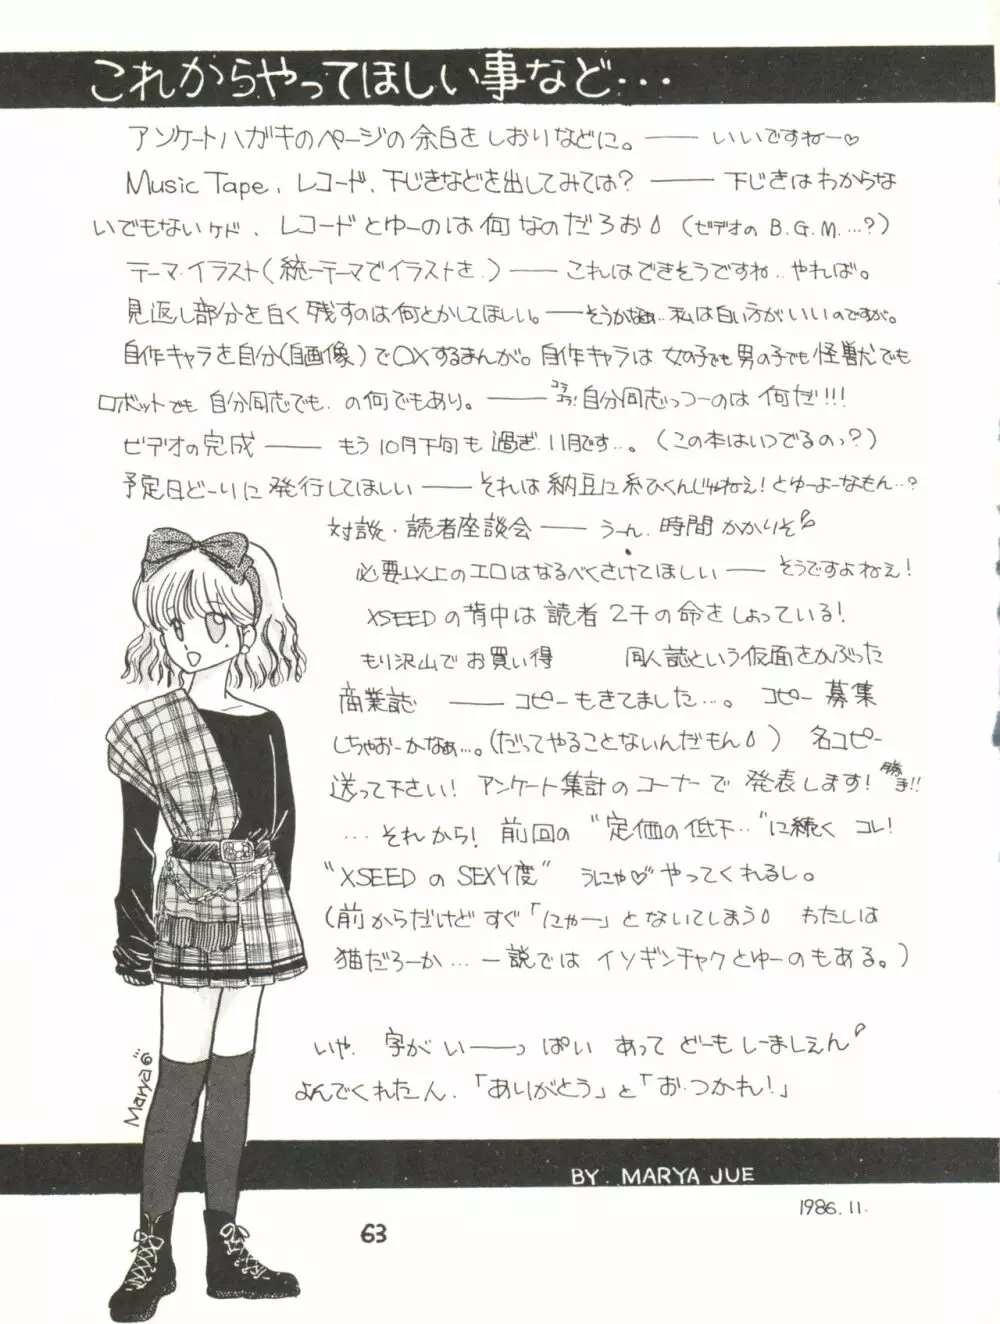 これからやってほしい事など・・・
アンケートハガキのページの余白をしおりなどに。── いいですねー♡
Music Tape、レコード、下じきなどを出してみては？ ── 下じきはわからな
いでもないケド、レコードとゆーのは何なのだろお （ビデオの B.G.M.…?）
テーマ・イラスト（統一テーマでイラストを.）── これはできそうですね..やれば。
見返し部分を白く残すのは何とかしてほしい。──そうかなぁ..私は白い方がいいのですが。
自作キャラを自分（自画像）で○×するまんが。自作キャラは女の子でも男の子でも怪獣でも
ロボットでも自分同志でも、の何でもあり。── コラコラ!自分同志っつーのは何だ!!!
ビデオの完成 ── もう10月下旬も過ぎ.11月です…。（この本はいつでるのっ?）
予定日どーりに発行してほしい ── それは納豆に糸ひくんじゃねえ!とゆーよーなもん…?
対談・読者座談会 ── うーん、時間かかりそ
必要以上のエロはなるべくさけてほしい ── そうですよねぇ!
XSEEDの背中は読者2千の命をしょっている!
もり沢山でお買い得　同人誌という仮面をかぶった
商業誌 ── コピーもきてました…。コピー募集
しちゃおーかなぁ…。（だってやることないんだもん）名コピー
送って下さい! アンケート集計のコーナーで発表します! 勝手!!
…それから! 前回の“定価の低下…”に続くコレ!
“XSEEDのSEXY度” うにゃ♡やってくれるし。
（前からだけどすぐ「にゃー」とないてしまう わたしは
猫だろーか…一説ではイソギンチャクとゆーのもある。）
いや、字がい──っぱいあってどーもしーましぇん
よんでくれたん、「ありがとう」と「お・つかれ!」
Marya
BY. MARYA JUE
1986.11.
63